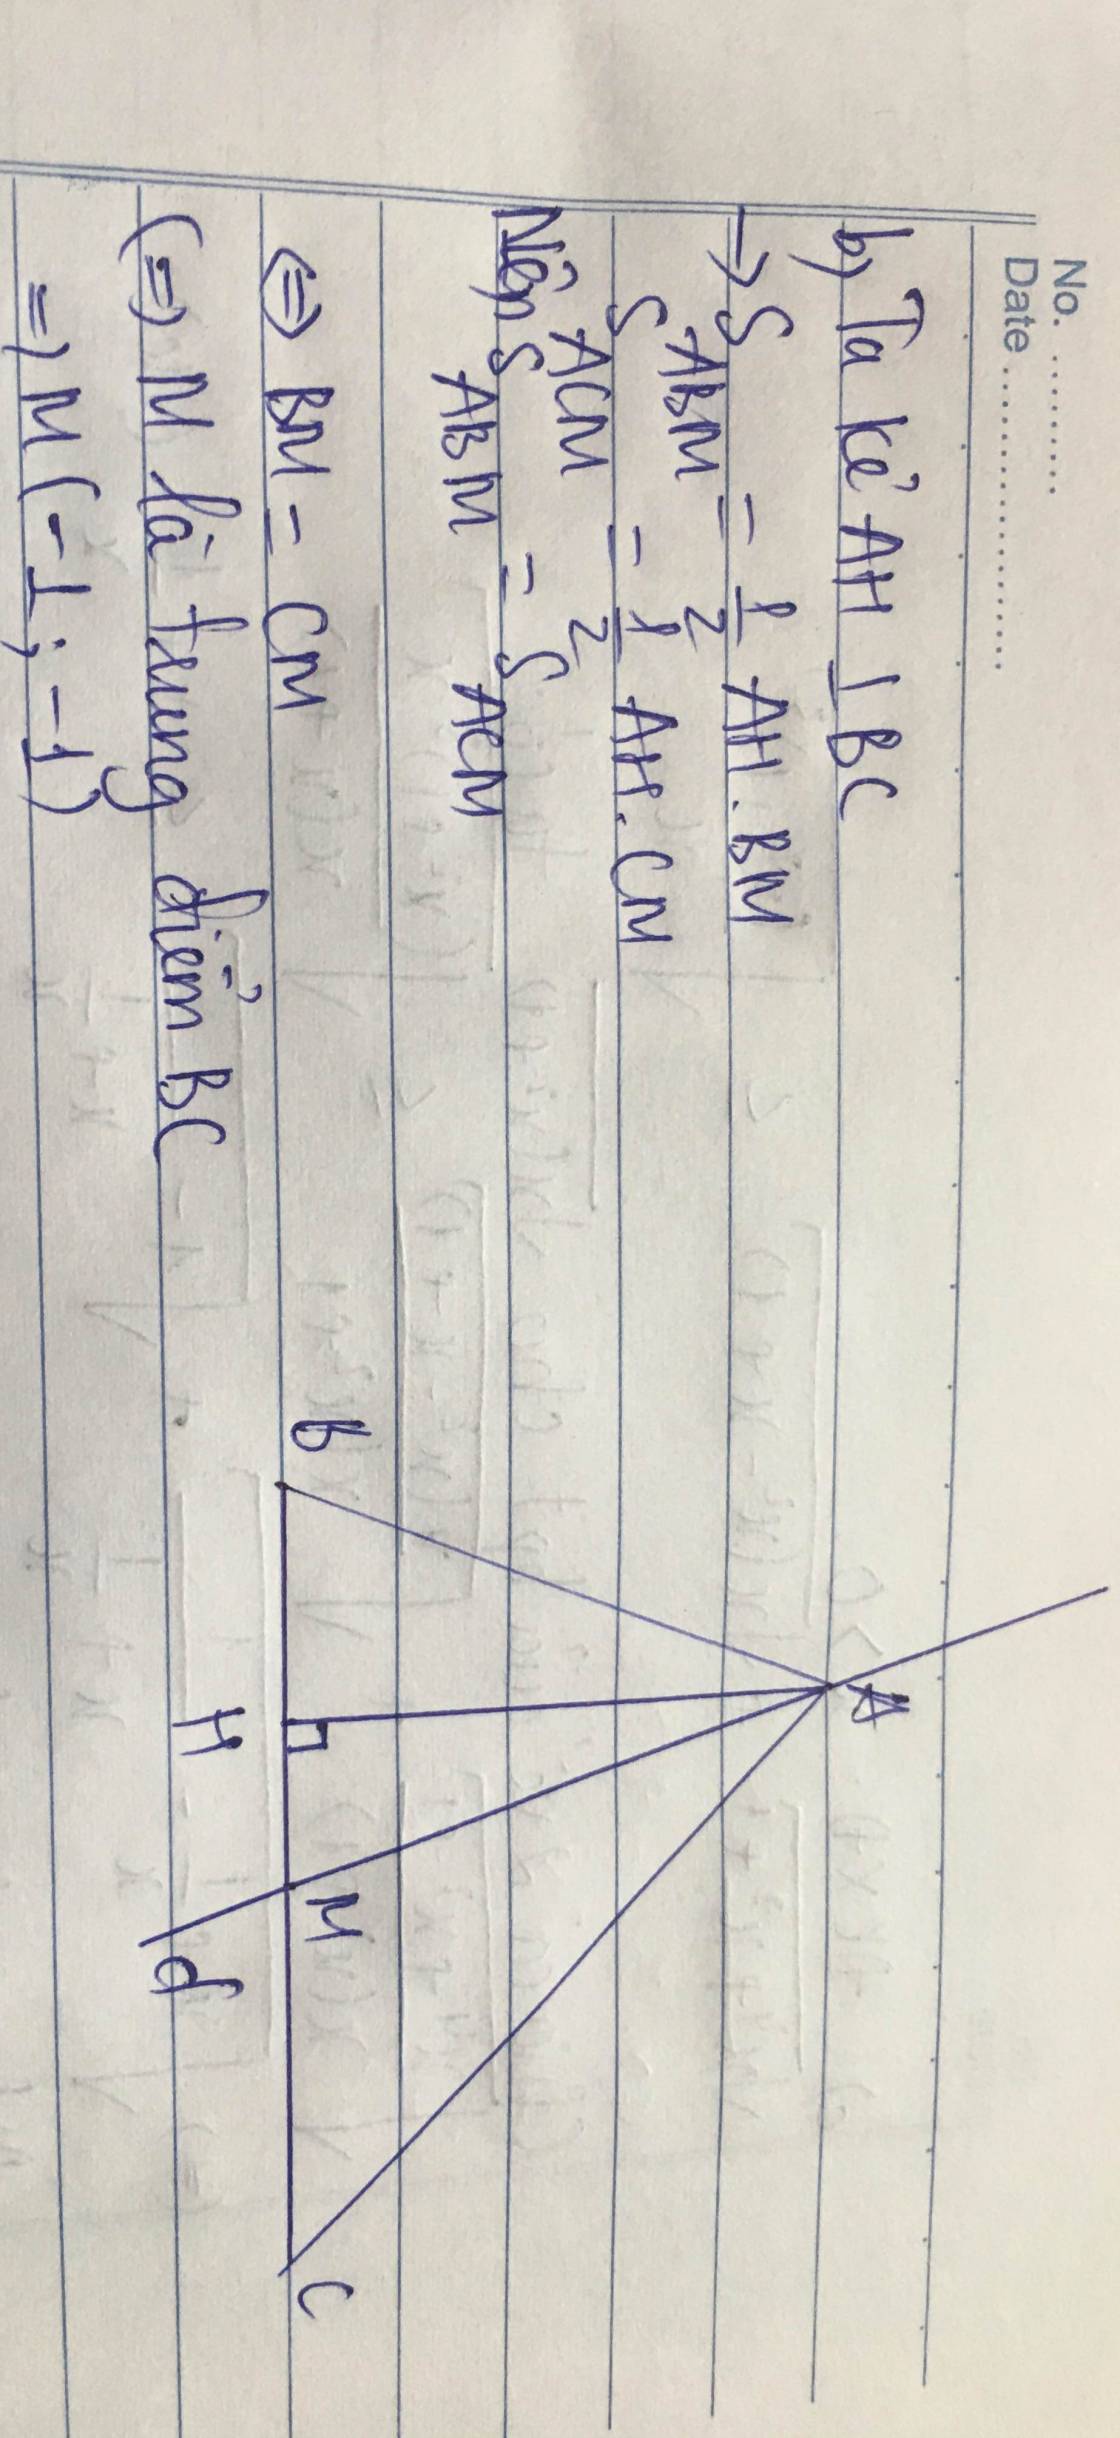 No. ..........
Date .......................
b) Ta kẻ AH ⊥ BC
→ S ABM = 1/2 AH. BM
S ACM = 1/2 AH. CM
Nên S ABM = S ACM
⇔ BM = CM
(=) M là trung điểm BC
=) M (-1; -1)
A
B
H
M
C
d